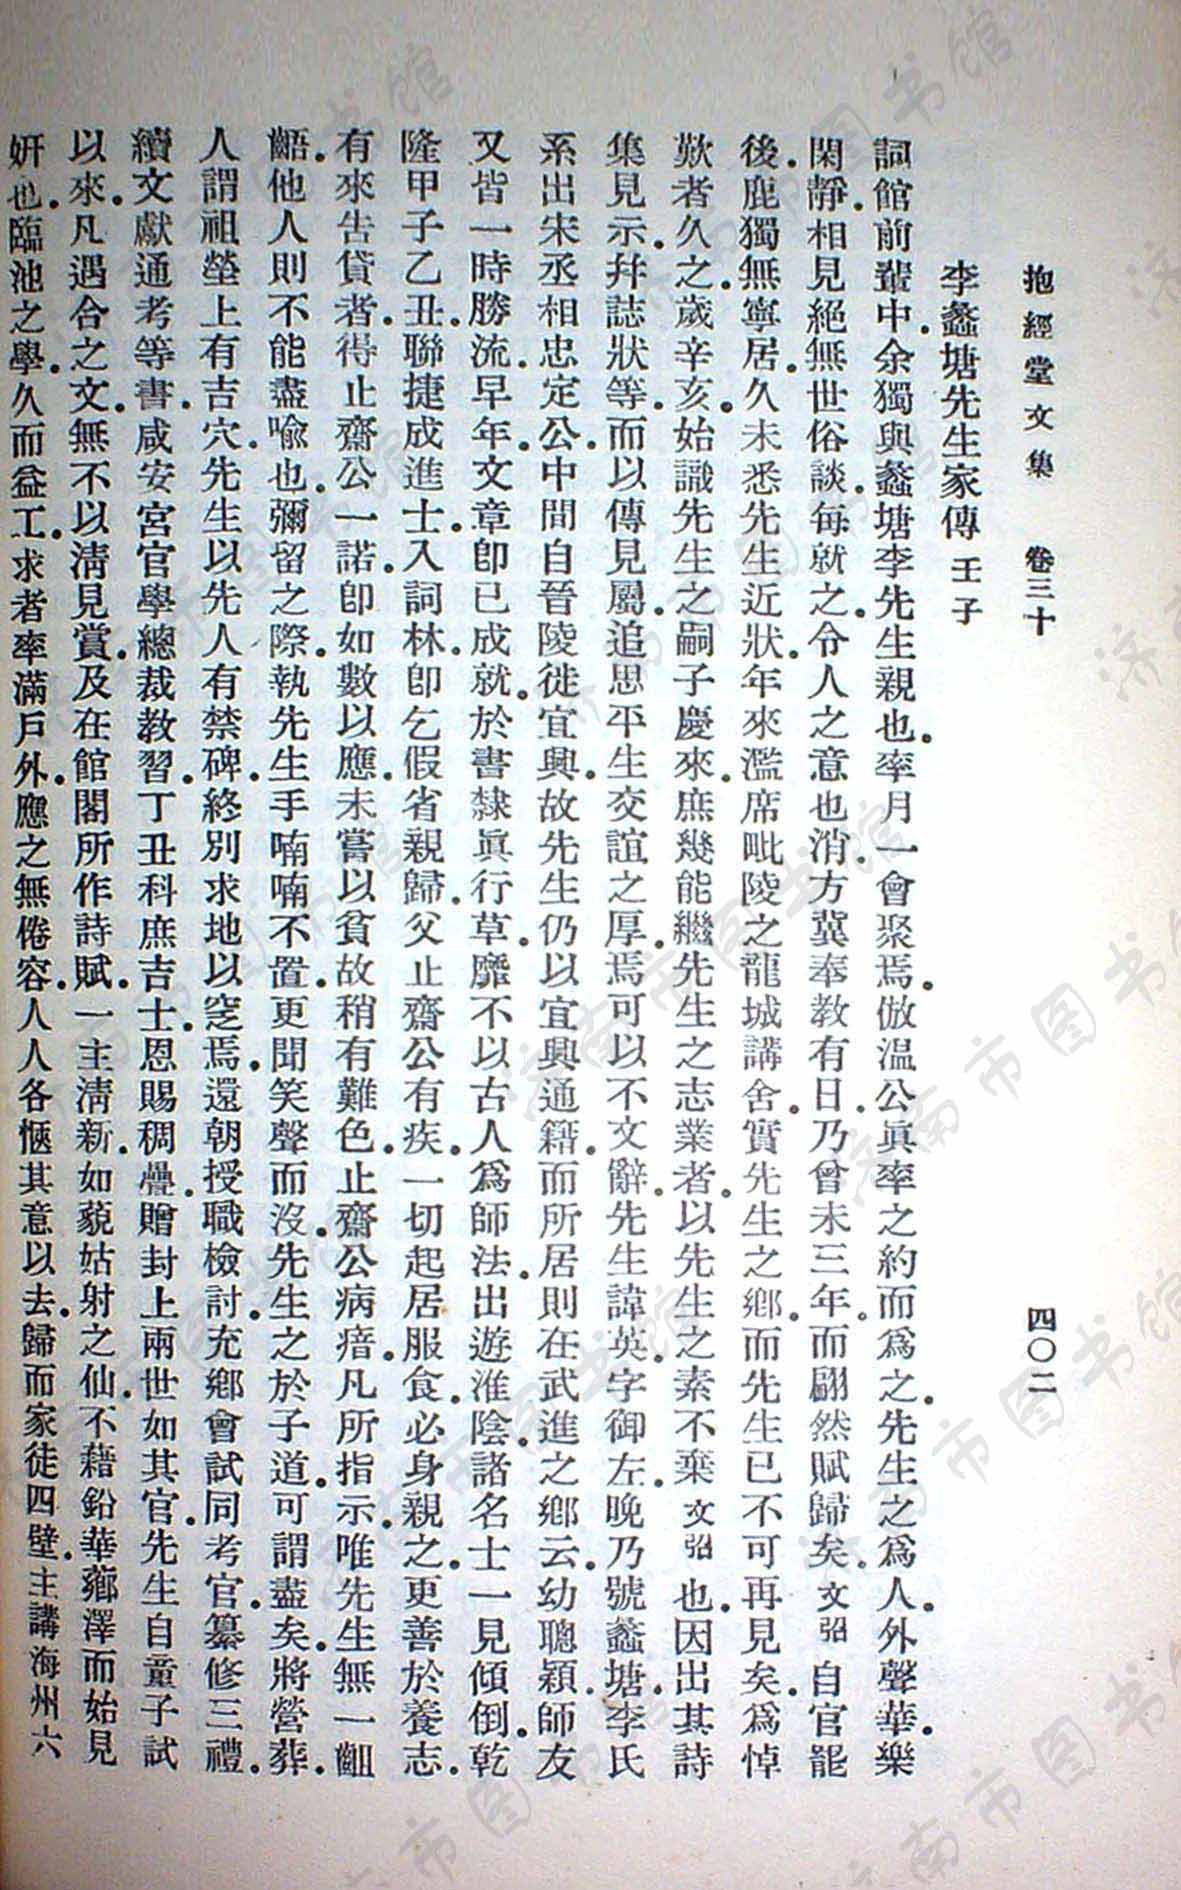 抱經堂文集　卷三十　四〇二
李蠡塘先生家傳 壬子
詞館前輩中余獨與蠡塘李先生親也率月一會聚焉倣溫公眞率之約而爲之先生之爲人外聲華樂
閑靜相見絕無世俗談每就之令人之意也消方冀奉教有日乃曾未三年而翩然賦歸矣文弨自官罷
後鹿獨無寧居久未悉先生近狀年來濫席毗陵之龍城講舍實先生之鄕而先生已不可再見矣爲悼
歎者久之歲辛亥始識先生之嗣子慶來庶幾能繼先生之志業者以先生之素不棄文弨也因出其詩
集見示幷誌狀等而以傳見屬追思平生交誼之厚焉可以不文辭先生諱英字御左晚乃號蠡塘李氏
系出宋丞相忠定公中間自晉陵徙宜興故先生仍以宜興通籍而所居則在武進之鄕云幼聰穎師友
又皆一時勝流早年文章卽已成就於書隸眞行草靡不以古人爲師法出遊淮陰諸名士一見傾倒乾
隆甲子乙丑聯捷成進士入詞林卽乞假省親歸父止齋公有疾一切起居服食必身親之更善於養志
有來告貸者得止齋公一諾卽如數以應未嘗以貧故稍有難色止齋公病瘖凡所指示唯先生無一齟
齬他人則不能盡喩也彌留之際執先生手喃喃不置更聞笑聲而沒先生之於子道可謂盡矣將營葬
人謂祖塋上有吉穴先生以先人有禁碑終別求地以窆焉還朝授職檢討充鄕會試同考官纂修三禮
續文獻通考等書咸安宮官學總裁教習丁丑科庶吉士恩賜稠疊贈封上兩世如其官先生自童子試
以來凡遇合之文無不以淸見賞及在館閣所作詩賦一主淸新如藐姑射之仙不藉鉛華薌澤而始見
妍也臨池之學久而益工求者率滿戶外應之無倦容人人各愜其意以去歸而家徒四壁主講海州六